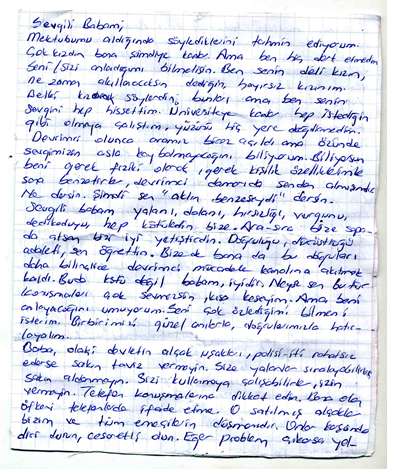 Sevgili Babam;
Mektubumu aldığında söylediklerini tahmin ediyorum.
Çok kızdın bana şimdiye kadar. Ama ben hiç dert etmedim
Seni/sizi anladığımı bilmelisin. Ben senin deli kızın,
ne zaman akıllanacaksın dediğin, hayırsız kızınım.
Belki kızarak söylerdin, bunları ama ben senin
sevgini hep hissettim. Üniversiteye kadar hep istediğin
gibi olmaya çalıştım, yüzünü hiç yere değdirmedim.
Devrimci olunca aramız biraz açıldı ama özünde
sevgimizin asla kaybolmayacağını biliyorum. Biliyorsun
beni gerek fiziki olarak, gerek kişilik özelliklerimle
sana benzetirler, devrimci damarıda senden almışımdır
Ne dersin. Şimdi sen "aklın benzeseydi" dersin.
Sevgili babam yalanı, dolanı, hırsızlığı, vurgunu,
dedikoduyu, hep kötüledin bize. Ara-sıra bize sopa-
da atsan bizi iyi yetiştirdin. Doğruluğu, dürüstlüğü
adaleti, sen öğrettin. Bize de bana da bu doğruları
daha bilinçlice devrimci mücadele kanalına akıtmak
kaldı. Buda kötü değil babam, iyidir. Neyse sen bu tür
konuşmaları çok sevmezsin, kısa keseyim. Ama beni
anlayacağını umuyorum. Seni çok özlediğimi bilmeni
isterim. Birbirimizi güzel anılarla, doğrularımızla hatır-
layalım.
Baba, olaki devletin alçak uşakları, polisi-iti rahatsız
ederse sakın taviz vermeyin. Size yalanlar sıralayabilirler,
sakın aldanmayın. Sizi kullanmaya çalışabilirler, izin
vermeyin. Telefon konuşmalarına dikkat edin. Bana olan
öfkeni telefonlarda ifade etme. O satılmış alçaklar
bizim ve tüm emekçilerin düşmanıdır. Onlar karşısında
dik durun, cesaretli olun. Eğer problem çıkarsa yol-